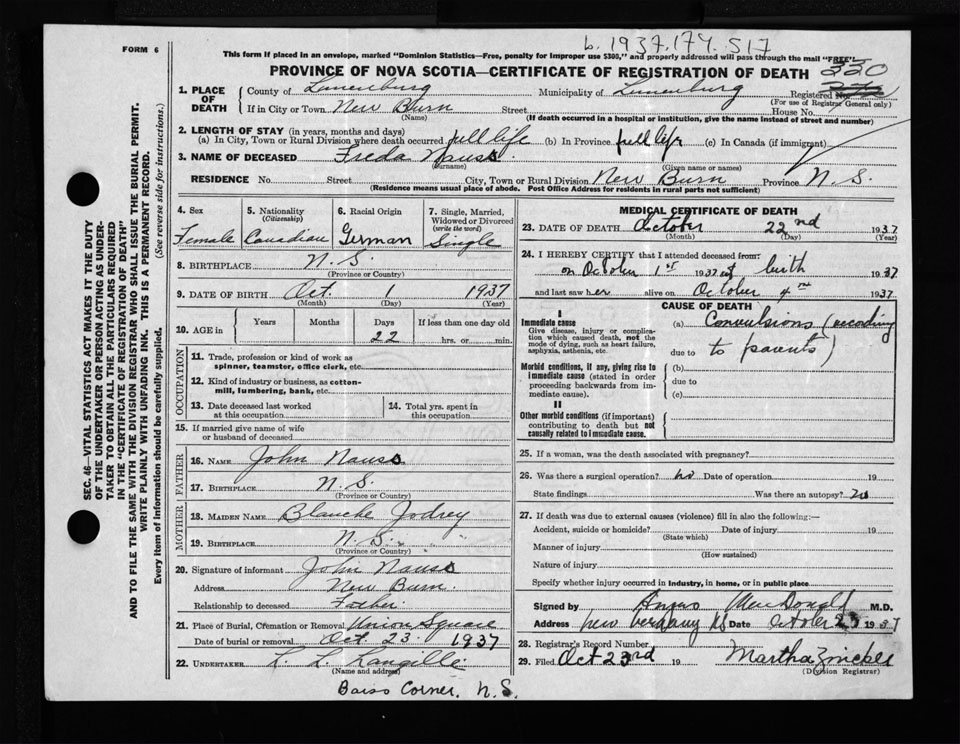 FORM 6
b. 1937.174.517
This form if placed in an envelope, marked "Dominion Statistics—Free, penalty for improper use $300," and properly addressed will pass through the mail "FREE"
PROVINCE OF NOVA SCOTIA—CERTIFICATE OF REGISTRATION OF DEATH
220
1. PLACE OF DEATH
County of Lunenburg Municipality of Lunenburg Registered No.
(For use of Registrar General only)
If in City or Town New Burn Street House No.
(Name) (If death occurred in a hospital or institution, give the name instead of street and number)
2. LENGTH OF STAY (in years, months and days)
(a) In City, Town or Rural Division where death occurred full life (b) In Province full life (c) In Canada (if immigrant)
3. NAME OF DECEASED Freda Nauss
(Surname) (Given name or names)
RESIDENCE No. Street City, Town or Rural Division New Burn Province N. S.
(Residence means usual place of abode. Post Office Address for residents in rural parts not sufficient)
4. Sex
Female
5. Nationality
(Citizenship)
Canadian
6. Racial Origin
German
7. Single, Married, Widowed or Divorced
(write the word)
Single
8. BIRTHPLACE N. S.
(Province or Country)
9. DATE OF BIRTH Oct. 1 1937
(Month) (Day) (Year)
10. AGE in Years Months Days If less than one day old
22 hrs. or min.
OCCUPATION
11. Trade, profession or kind of work as
spinner, teamster, office clerk, etc.
12. Kind of industry or business, as cotton-
mill, lumbering, bank, etc.
13. Date deceased last worked
at this occupation
14. Total yrs. spent in
this occupation
15. If married give name of wife
or husband of deceased
FATHER
16. NAME John Nauss
17. BIRTHPLACE N. S.
(Province or Country)
MOTHER
18. MAIDEN NAME Blanche Jodrey
19. BIRTHPLACE N. S. " "
(Province or Country)
20. Signature of informant John Nauss
Address New Burn
Relationship to deceased Father
21. Place of Burial, Cremation or Removal Union Square
Date of burial or removal Oct. 23. 1937
22. UNDERTAKER L. L. Langille
(Name and address)
Barss Corner, N. S.
MEDICAL CERTIFICATE OF DEATH
23. DATE OF DEATH October 22nd 1937
(Month) (Day) (Year)
24. I HEREBY CERTIFY that I attended deceased from:
on October 1st 1937 at birth 1937
and last saw her alive on October 4th 1937
CAUSE OF DEATH
I
Immediate cause
Give disease, injury or complication which caused death, not the mode of dying, such as heart failure, asphyxia, asthenia, etc.
(a) Convulsions (according
due to to parents)
Morbid conditions, if any, giving rise to immediate cause (stated in order proceeding backwards from immediate cause).
(b)
due to
(c)
II
Other morbid conditions (if important) contributing to death but not causally related to immediate cause.
25. If a woman, was the death associated with pregnancy?
26. Was there a surgical operation? no Date of operation 19
State findings Was there an autopsy? no
27. If death was due to external causes (violence) fill in also the following:—
Accident, suicide or homicide? Date of injury 19
(State which)
Manner of injury
(How sustained)
Nature of injury
Specify whether injury occurred in industry, in home, or in public place
Signed by Angus MacDonald M.D.
Address New Germany NS Date October 23 1937
28. Registrar's Record Number
29. Filed Oct 23rd 19 Martha Zinck
(Division Registrar)
SEC. 46—VITAL STATISTICS ACT MAKES IT THE DUTY
OF THE UNDERTAKER OR PERSON ACTING AS UNDER-
TAKER TO OBTAIN ALL THE PARTICULARS REQUIRED
IN THE "CERTIFICATE OF REGISTRATION OF DEATH"
AND TO FILE THE SAME WITH THE DIVISION REGISTRAR WHO SHALL ISSUE THE BURIAL PERMIT.
WRITE PLAINLY WITH UNFADING INK. THIS IS A PERMANENT RECORD.
Every item of information should be carefully supplied. (See reverse side for instructions.)